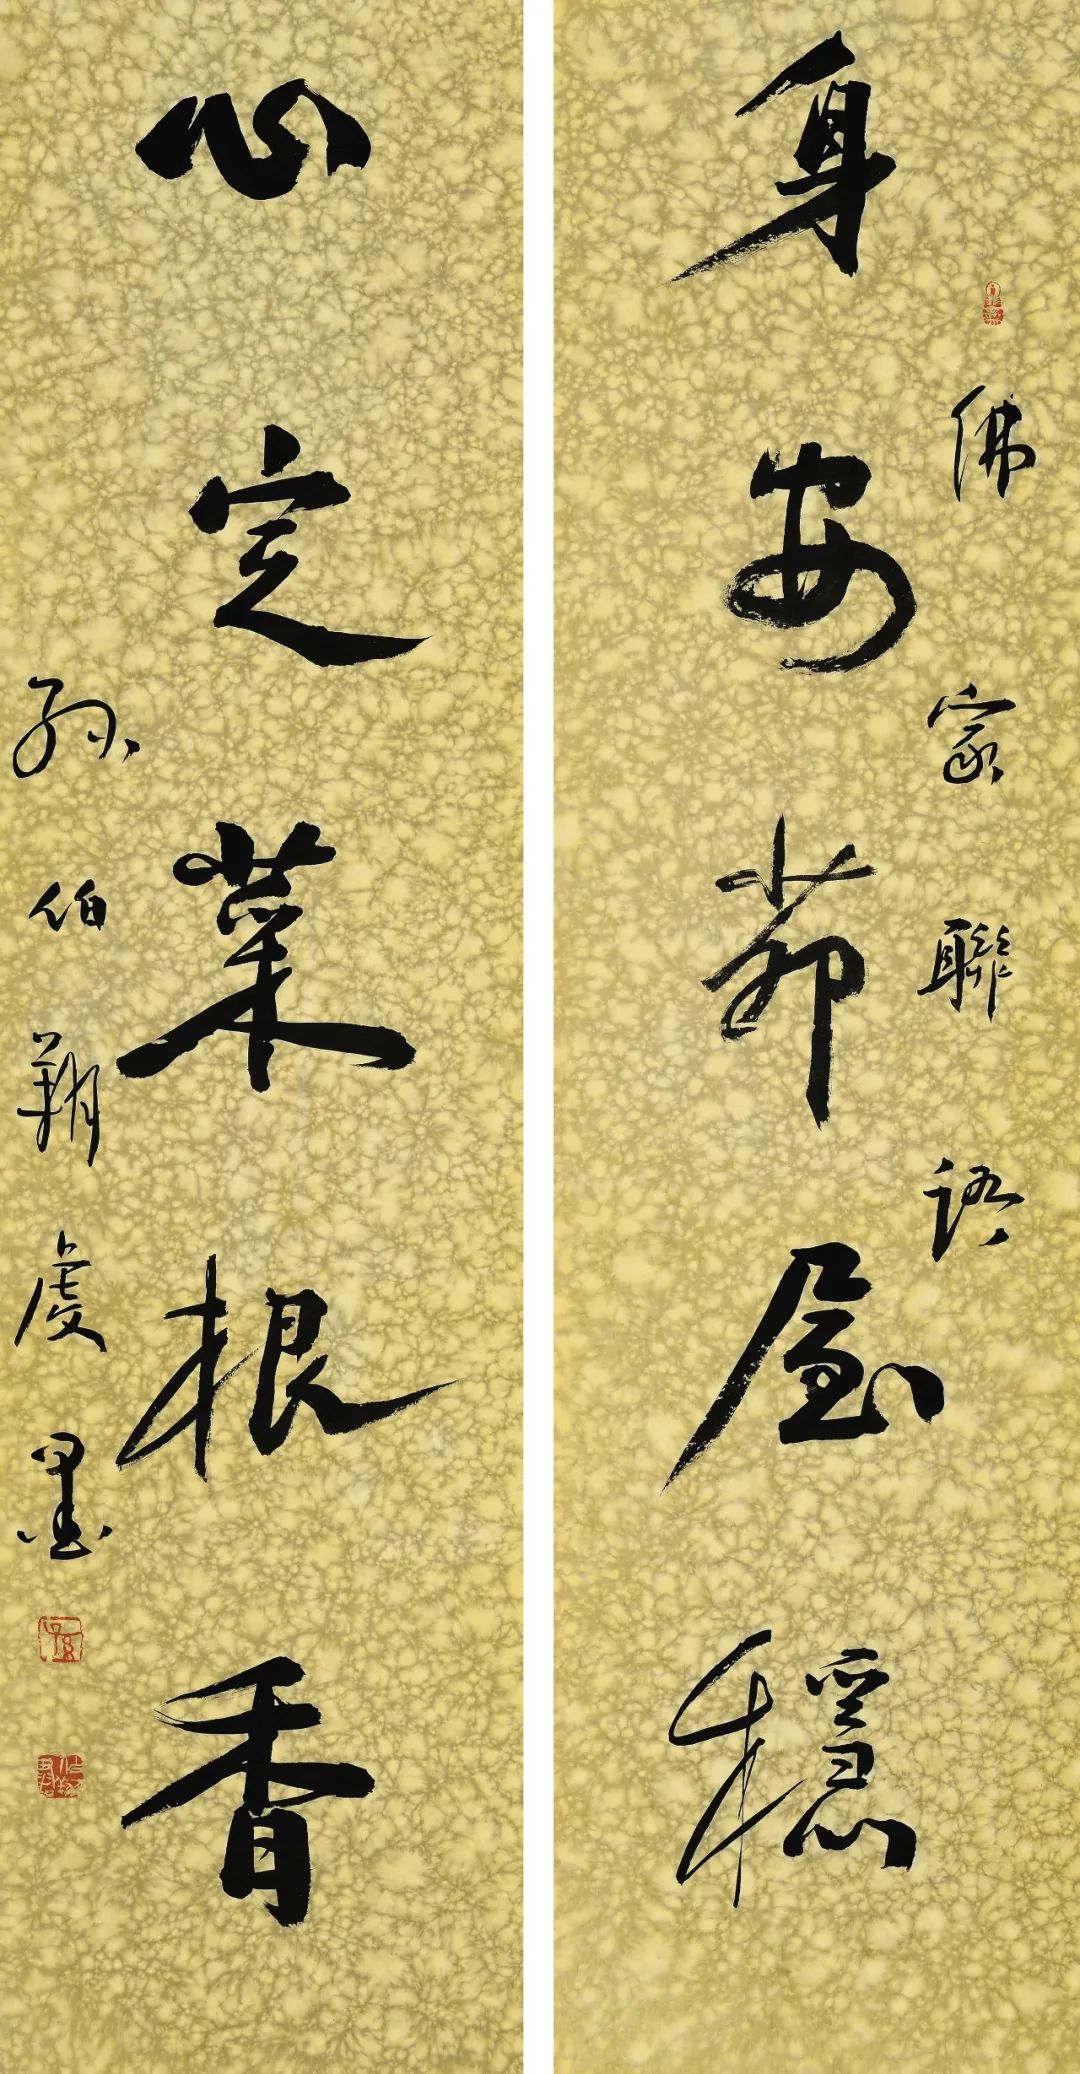 佛家聯語
身安茆屋穩
心定菜根香
孙伯翔虔墨